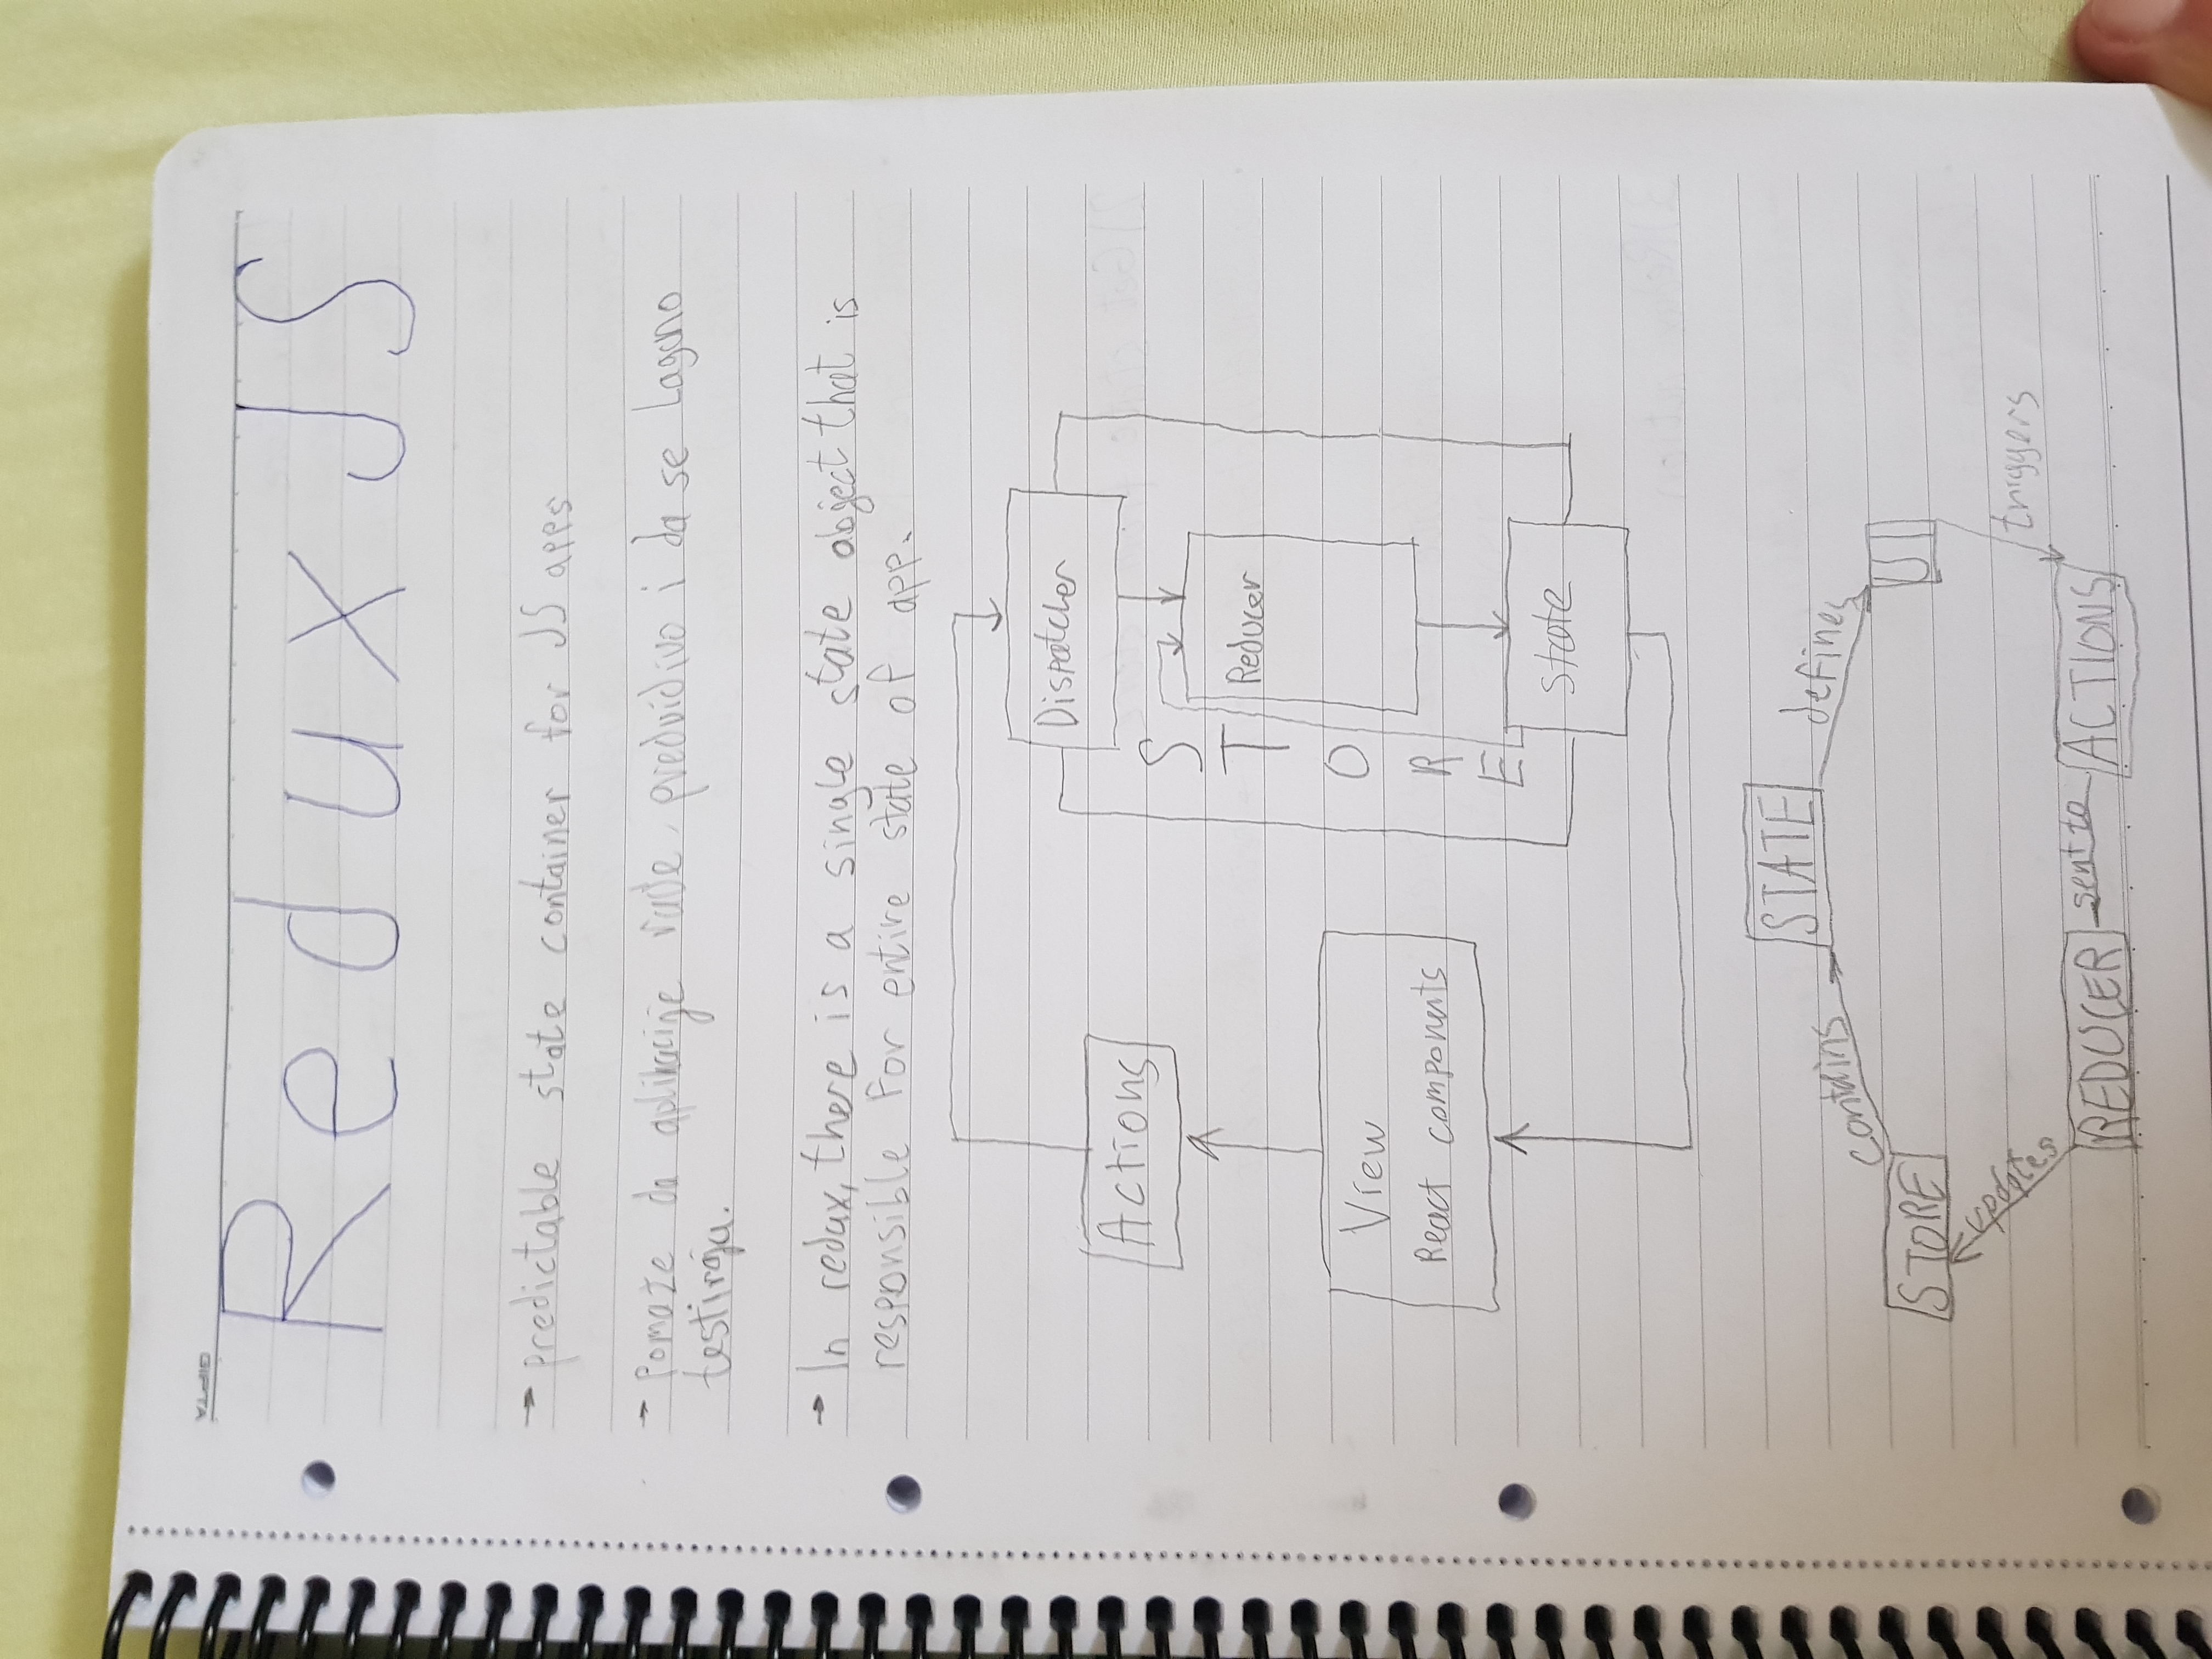 GIPTA
Redux JS
→ predictable state container for JS apps
→ Pomaže da aplikacije rade predvidivo i da se Lagano
testiraju.
→ In redux, there is a single state object that is
responsible For entire state of app.
Dispatcher
Actions
STORE
Reducer
View
React components
state
STATE
contains
defines
STORE
UI
updates
triggers
REDUCER
sent to
ACTIONS